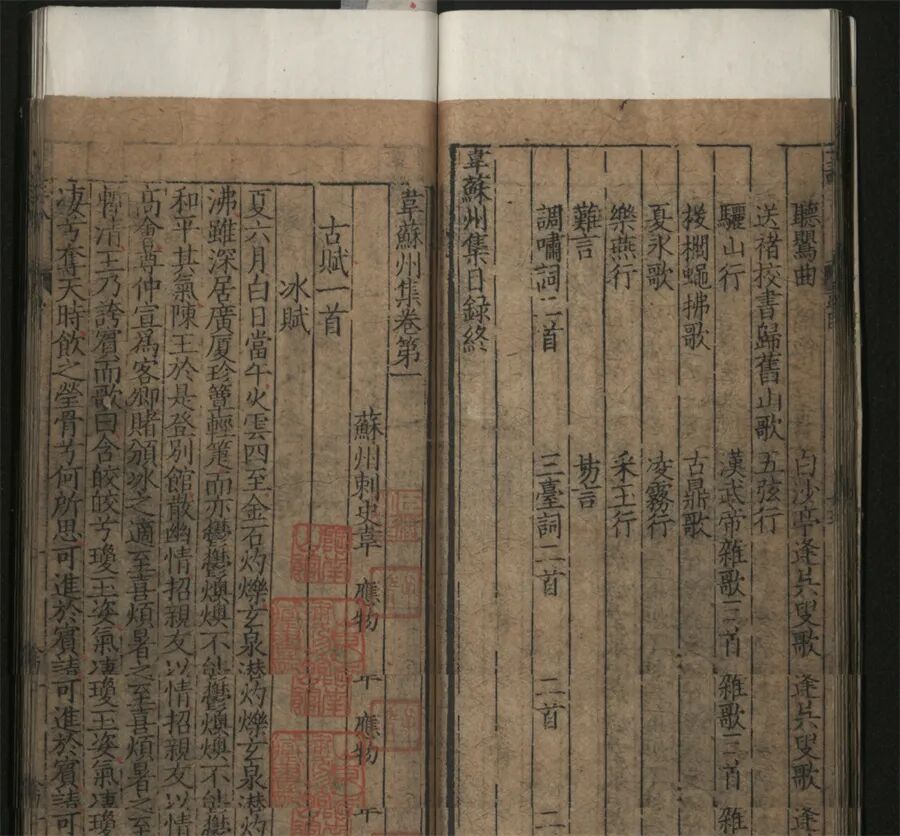 聽鶯曲 白沙亭逢吳叟歌 逢吳叟歌 逢
送褚校書歸舊山歌 五弦行
驪山行 漢武帝雜歌三首 雜歌三首 雜
椶櫚蠅拂歌 古鼎歌
夏冰歌 凌霧行
樂燕行 采玉行
難言 易言
調嘯詞二首 三臺詞二首 二首 二
韋蘇州集目録終
韋蘇州集卷第一
蘇州刺史韋 應物 應物
古賦一首
冰賦
夏六月白日當午火雲四至金石灼爍玄泉潜灼爍玄泉潜灼
沸雖深居廣厦珍簟輕箑而亦鬱鬱燠燠不能鬱燠燠不
和平其氣陳王於是登別館散幽情招親友以情招親友以情
高會尊仲宣爲客卿睹頒冰之適至喜煩暑之至喜煩暑之至
暫清王乃誇賓而歌曰含皎皎兮瓊玉姿氣凄瓊玉姿氣凄瓊
凄兮奪天時飲之瑩骨兮何所思可進於賓請可進於賓請可